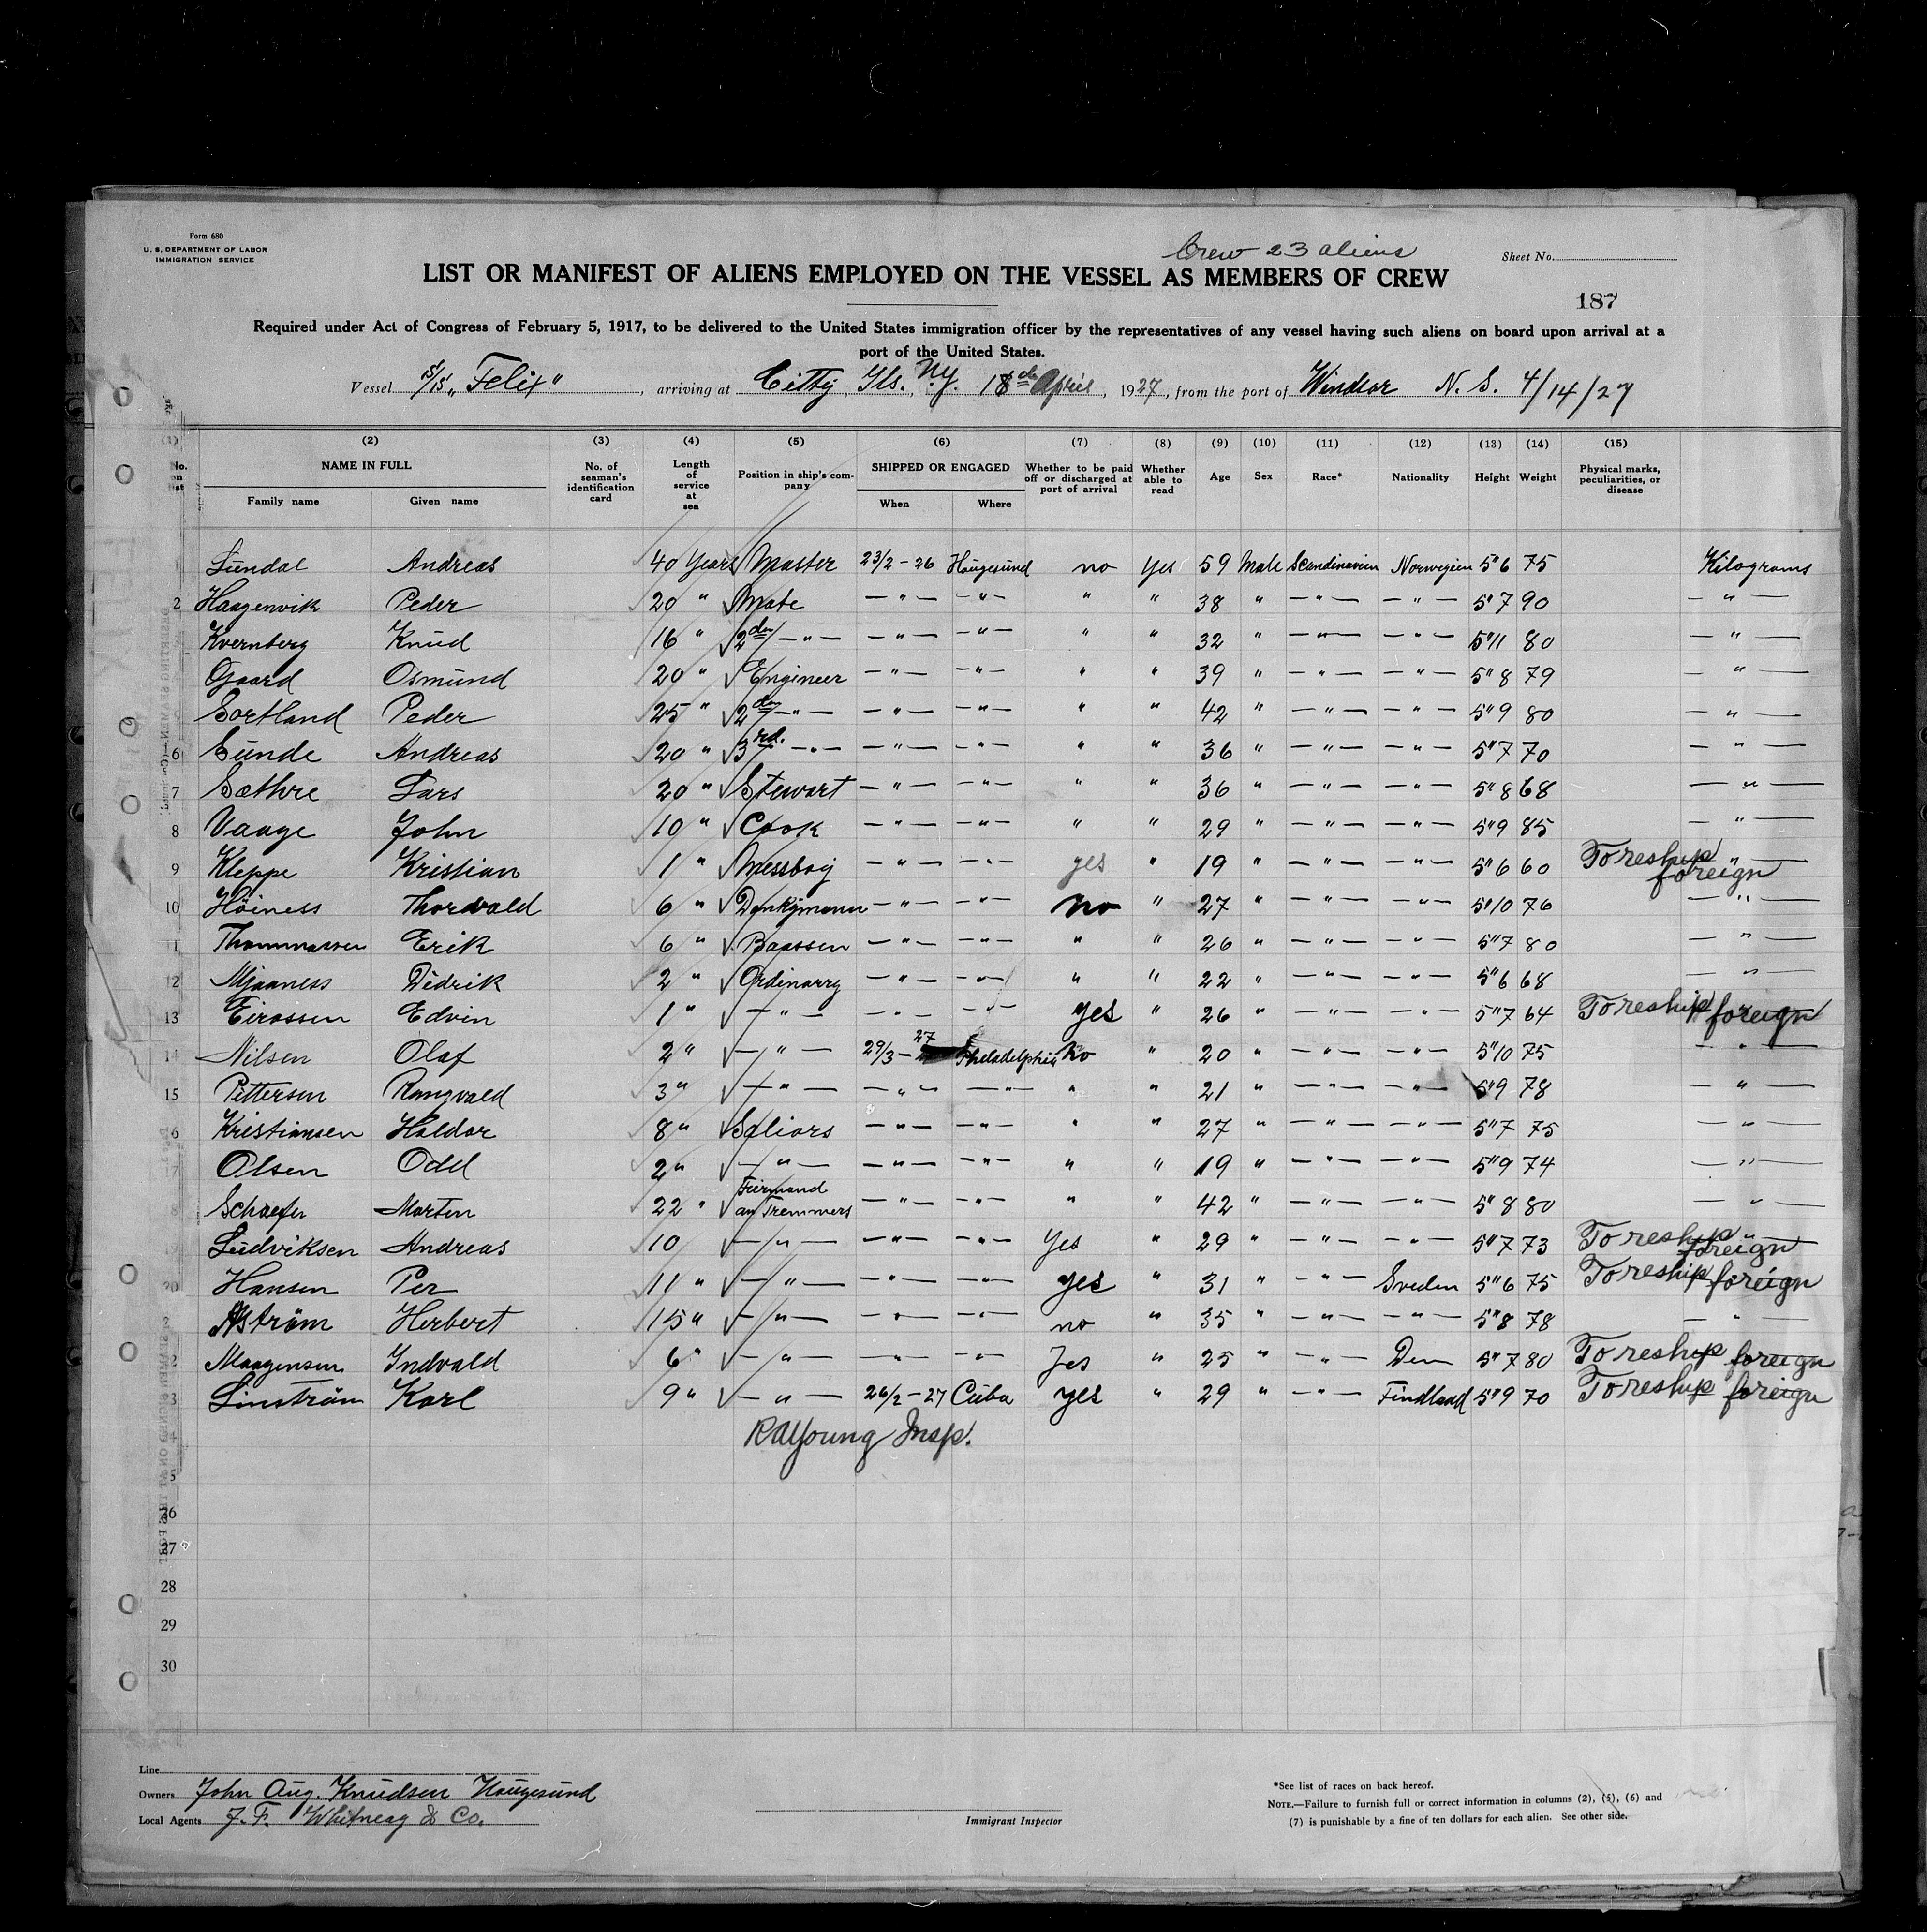 Form 680
U. S. DEPARTMENT OF LABOR
IMMIGRATION SERVICE
Crew 23 aliens
Sheet No.
LIST OR MANIFEST OF ALIENS EMPLOYED ON THE VESSEL AS MEMBERS OF CREW
187
Required under Act of Congress of February 5, 1917, to be delivered to the United States immigration officer by the representatives of any vessel having such aliens on board upon arrival at a
port of the United States.
Vessel S/S „Felix" , arriving at Citty Ils. N.Y. 18 April , 1927, from the port of Windsor N. S. 4/14/27
(1) (2) (3) (4) (5) (6) (7) (8) (9) (10) (11) (12) (13) (14) (15)
No. on list NAME IN FULL Family name Given name No. of seaman's identification card Length of service at sea Position in ship's company SHIPPED OR ENGAGED When Where Whether to be paid off or discharged at port of arrival Whether able to read Age Sex Race* Nationality Height Weight Physical marks, peculiarities, or disease
Lundal Andreas 40 Years Master 23/2 - 26 Haugesund no Yes 59 Male Scandinavien Norwegien 5"6 75 Kilograms
2 Haagenvik Peder 20 " Mate — " — — " — " " 38 " — " — — " — 5"7 90 — " —
Kvernberg Knud 16 " 2 — " — — " — — " — " " 32 " — " — — " — 5"11 80 — " —
Gaard Osmund 20 " Engineer — " — — " — " " 39 " — " — — " — 5"8 79 — " —
Sortland Peder 25 " 2 — " — — " — — " — " " 42 " — " — — " — 5"9 80 — " —
6 Sunde Andreas 20 " 3rd. — " — — " — — " — " " 36 " — " — — " — 5"7 70 — " —
7 Sæthre Lars 20 " Stewart — " — — " — " " 36 " — " — — " — 5"8 68 — " —
8 Vaage John 10 " Cook — " — — " — " " 29 " — " — — " — 5"9 85 — " —
9 Kleppe Kristian 1 " Messboy — " — — " — yes " 19 " — " — — " — 5"6 60 To reship foreign — " —
10 Höiness Thorvald 6 " Donkymann — " — — " — no " 27 " — " — — " — 5"10 76 — " —
1 Thommassen Erik 6 " Baassen — " — — " — " " 26 " — " — — " — 5"7 80 — " —
12 Mjaaness Didrik 2 " Ordinarry — " — — " — " " 22 " — " — — " — 5"6 68 — " —
13 Eirassen Edvin 1 " — " — — " — — " — yes " 26 " — " — — " — 5"7 64 To reship foreign
14 Nilsen Olaf 2 " — " — 29/3 - 27 Pheladelphia no " 20 " — " — — " — 5"10 75 — " —
15 Pettersen Rangvald 3 " — " — — " — — " — " " 21 " — " — — " — 5"9 78 — " —
6 Kristiansen Haldor 8 " Saliors — " — — " — " " 27 " — " — — " — 5"7 75 — " —
7 Olsen Odd 2 " — " — — " — — " — " " 19 " — " — — " — 5"9 74 — " —
8 Schaefer Morten 22 " Feirmand an Tremmers — " — — " — " " 42 " — " — — " — 5"8 80 — " —
19 Ludviksen Andreas 10 — " — — " — — " — Yes " 29 " — " — — " — 5"7 73 To reship foreign — " —
20 Hansen Per 11 " — " — — " — — " — yes " 31 " — " — Sveden 5"6 75 To reship foreign
2 Aström Herbert 15 " — " — — " — — " — no " 35 " — " — — " — 5"8 78 — " —
2 Maagensen Indvald 6 " — " — — " — — " — Yes " 25 " — " — Den 5"7 80 To reship foreign
3 Linström Karl 9 " — " — 26/2 - 27 Cuba yes " 29 " — " — Findland 5"9 70 To reship foreign
4 RAYoung Insp.
5
26
27
28
29
30
Line
Owners John Aug. Knudsen Haugesund
Local Agents J. F. Whitneay & Co.
Immigrant Inspector
*See list of races on back hereof.
NOTE.—Failure to furnish full or correct information in columns (2), (5), (6) and
(7) is punishable by a fine of ten dollars for each alien. See other side.